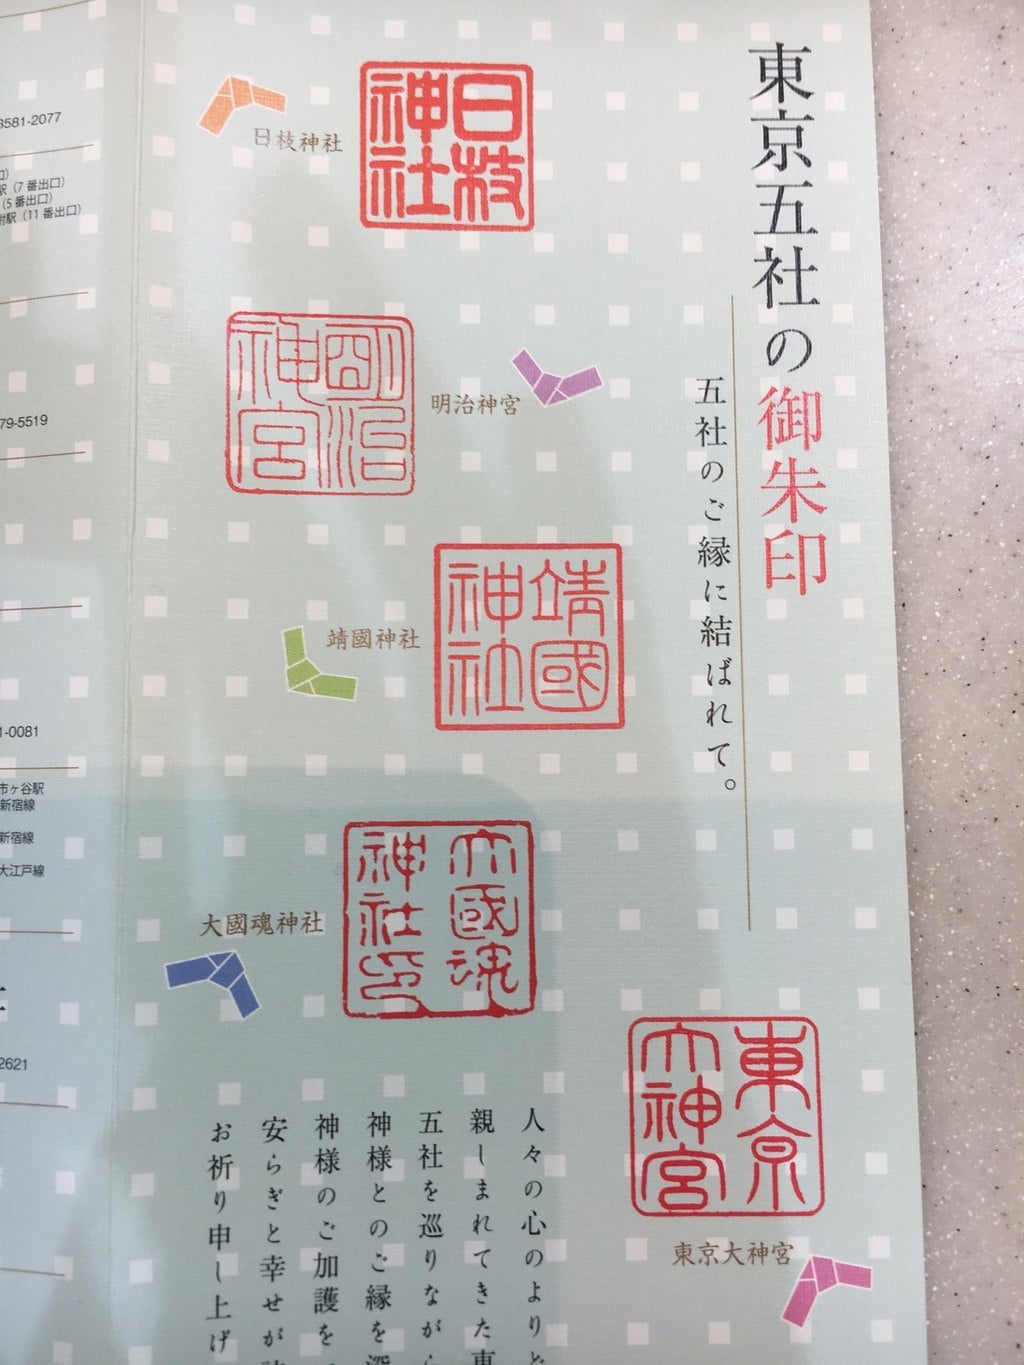 東京五社の御朱印
五社のご縁に結ばれて。
日枝神社
日枝神社
明治神宮
明治神宮
靖國神社
靖國神社
大國魂神社
大國魂神社印
東京大神宮
東京大神宮
人々の心のより
親しまれてきた
五社を巡りながら
神様とのご縁を
神様のご加護を
安らぎと幸せが
お祈り申し上げ
3581-2077
駅（7 番出口）
（5 番出口）
附駅（11 番出口）
79-5519
1-0081
市ヶ谷駅
新宿線
新宿線
大江戸線
2621